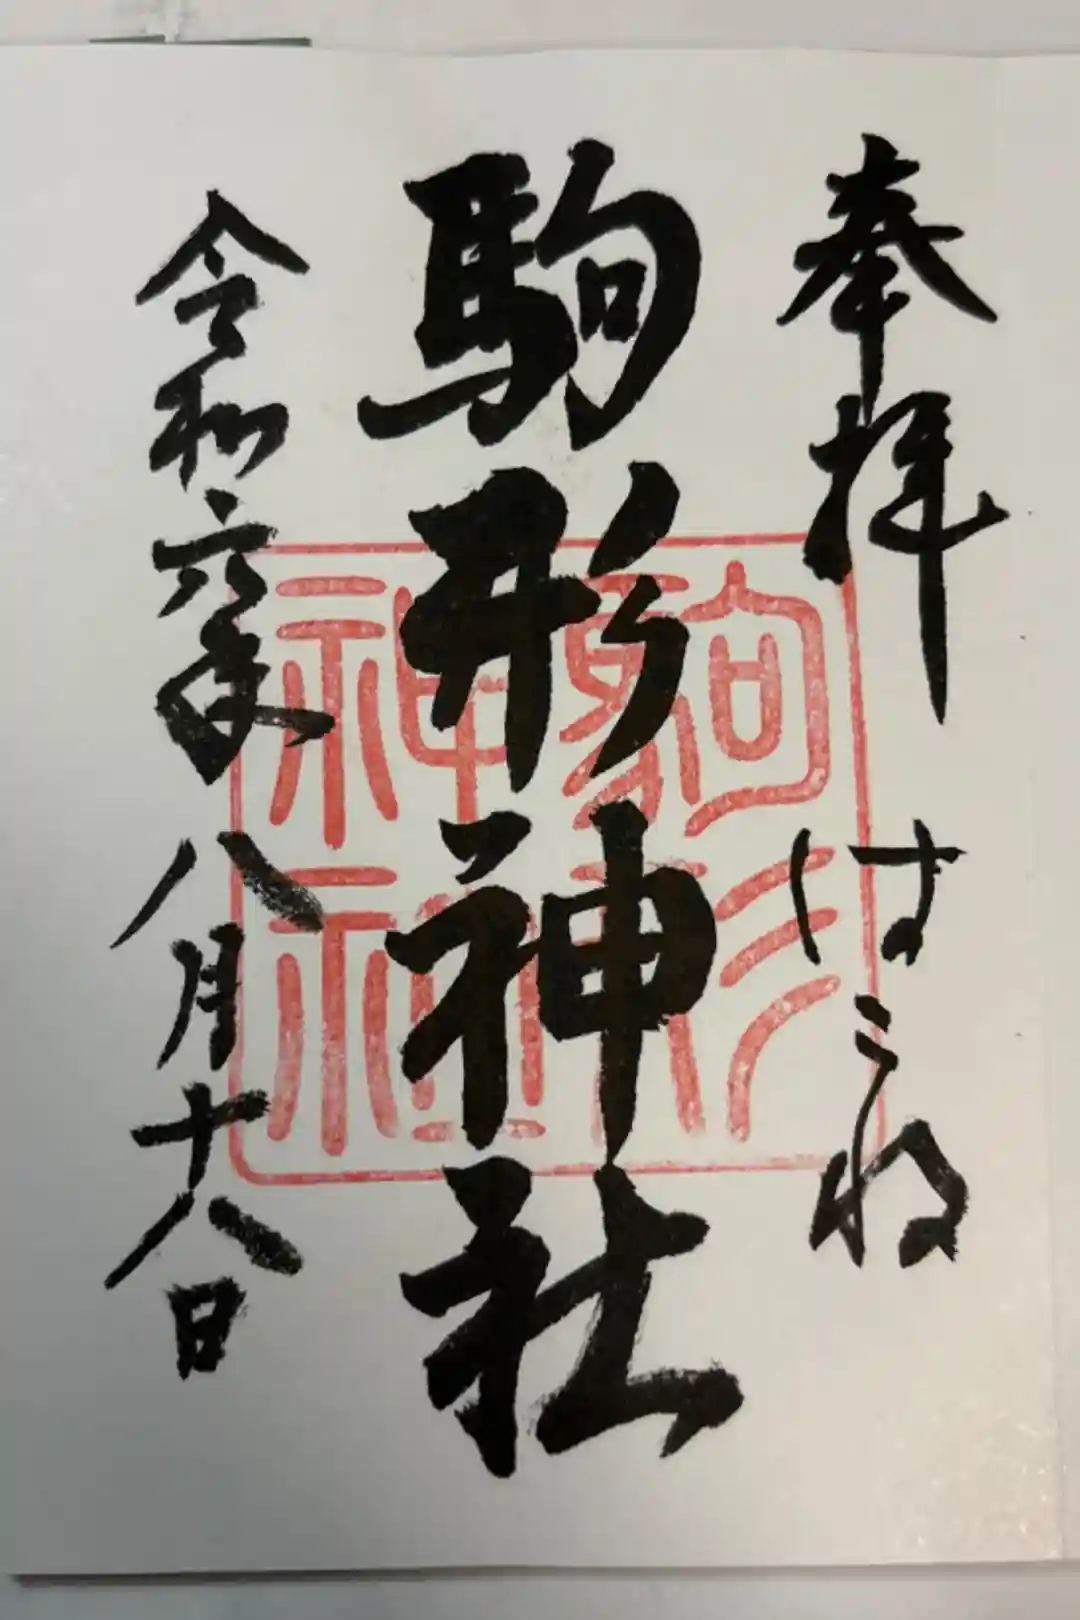 奉拝 はこね
駒形神社
令和六年 八月十八日
駒形
神社